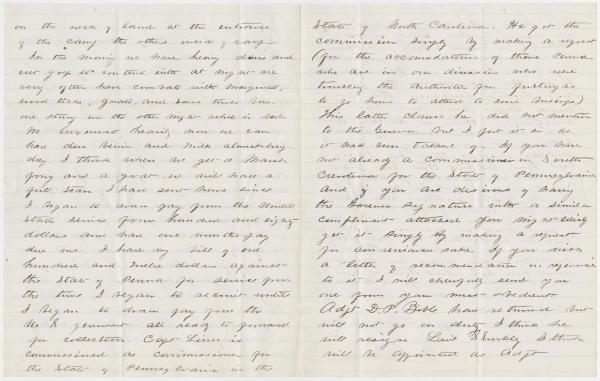 on the neck of land at the entrance
of the camp the others inside of camp
In the morning we have heavy dews and
fogs to contend with At night we
very often have combats with Mosquitoes,
wood ticks, gnats, and some times
one stung me the other night which is sore
We live heavily now we can
have deer venison and milk almost every
day I think when we get a
and a goat we will have a
full I have sent home since
I began to draw pay from the United
States service four hundred and eighty
dollars and have one months pay
due me. I have my bill of one
hundred and twelve dollars against
the State of Penna for service from
the time I began to recruit until
I began to draw pay from the
U. S government all ready to forward
for collection. Capt Linn is
commissioned as commissioner for
the State of Pennsylvania in the
State of South Carolina. He got the
commission simply by making a request
(for the accomodation of those Penna
who are in our division who were
the Authorities for furloughs
to go home to attend to some business)
This latter clause he did not mention
to the Governor but I put it in as
it had been talked of. If you have
not already a commissioner in South
Carolina for the State of Pennsylvania
And if you are desirous of having
the Governors signature with a similar
compliment attached you might easily
get it simply by making a request
for conveniences sake. If you wish
a letter of recommendation in reference
to it I will cheerfully send you
one from your most obedient
Adgt D. P. Bible has returned but
will not go on duty I think he
will resign Lieut I think
will be appointed as Adgt